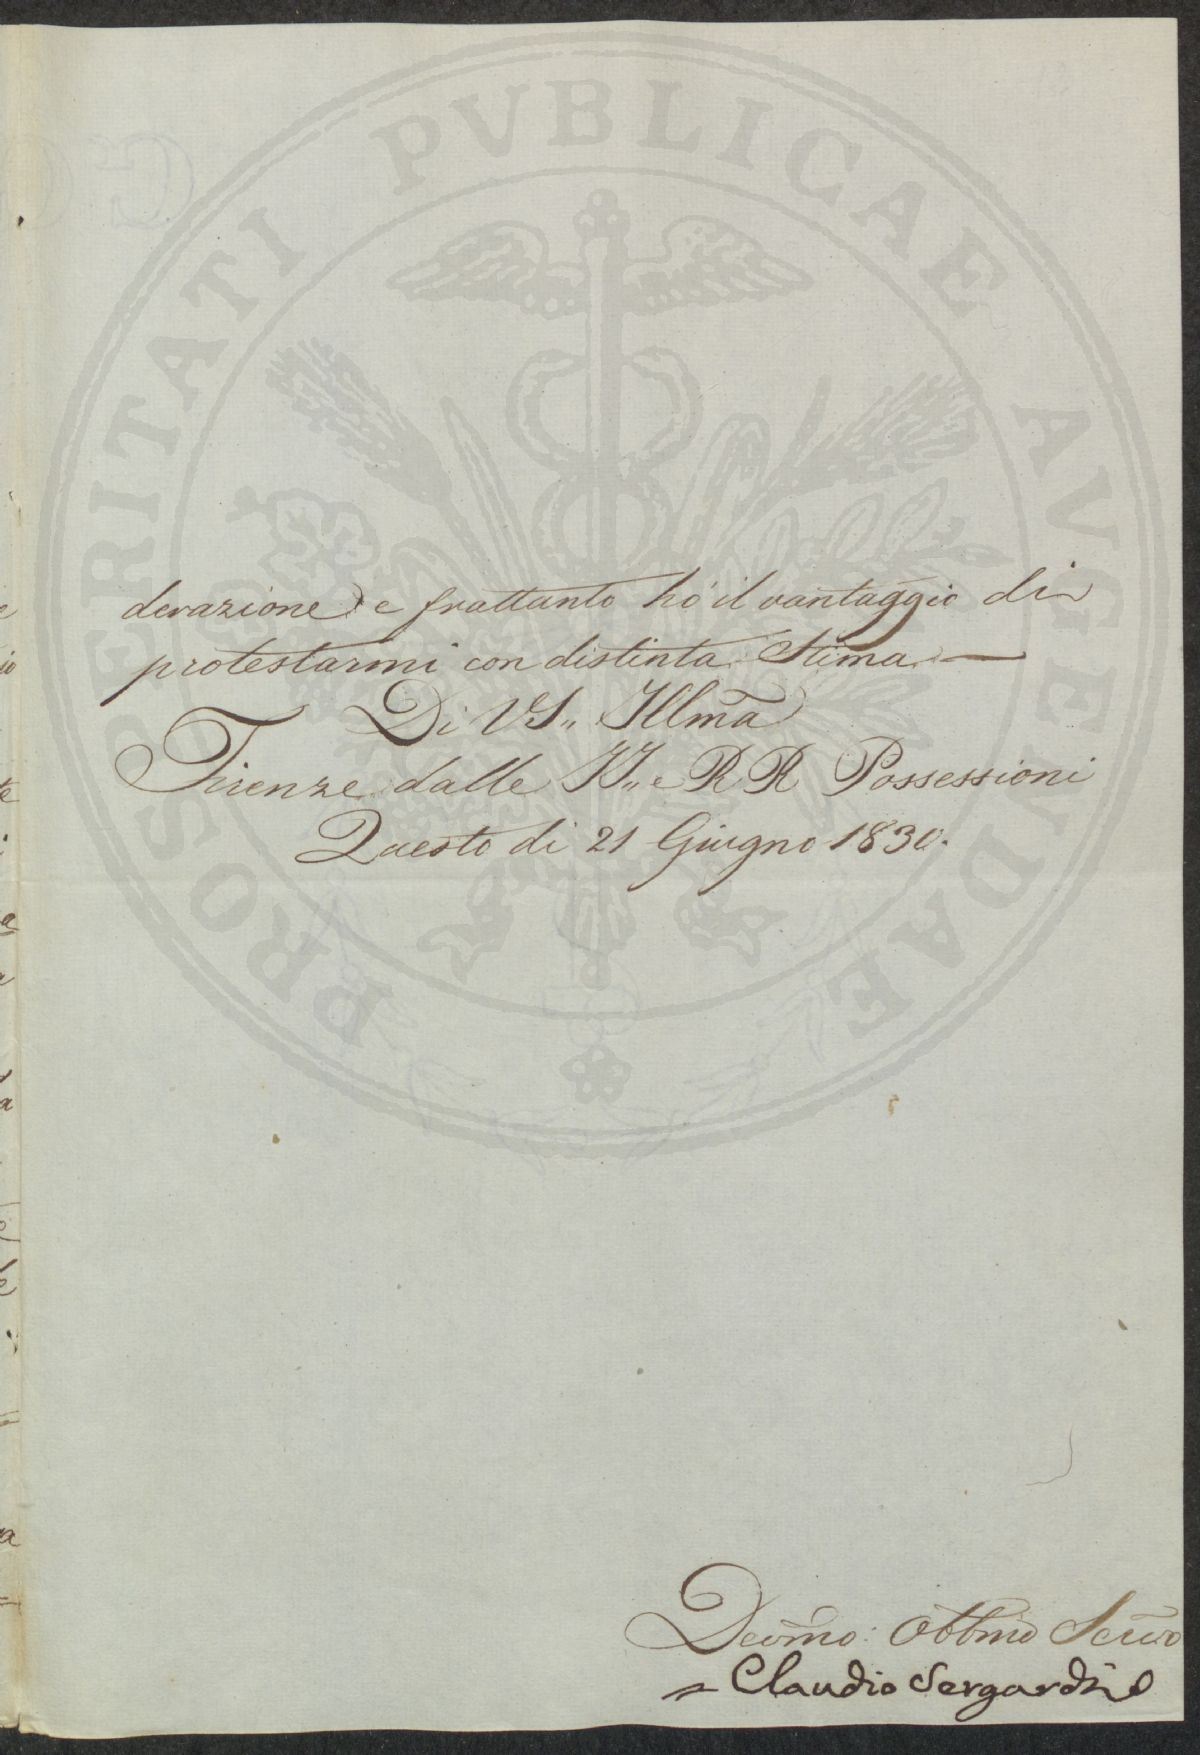 PROSPERITATI PVBLICAE AVGENDAE
derazione e frattanto hò il vantaggio di
protestarmi con distinta Stima —
Di VS,, Illm̃a
Firenze dalle II,, e RR Possessioni
Questo dì 21 Giugno 1830.
Devm̃o: Obbm̃o Serṽo
Claudio Sergardi